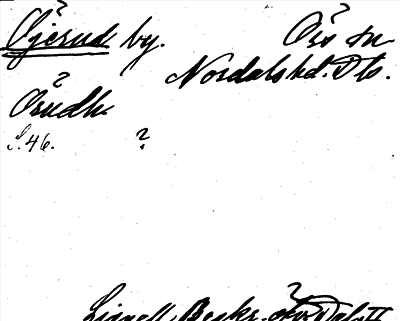 Öjerud by. Örs sn
Nordals hd. Ds.
Örudh
S. 46. ?
Lignell, Beskr. öfv. Dal II